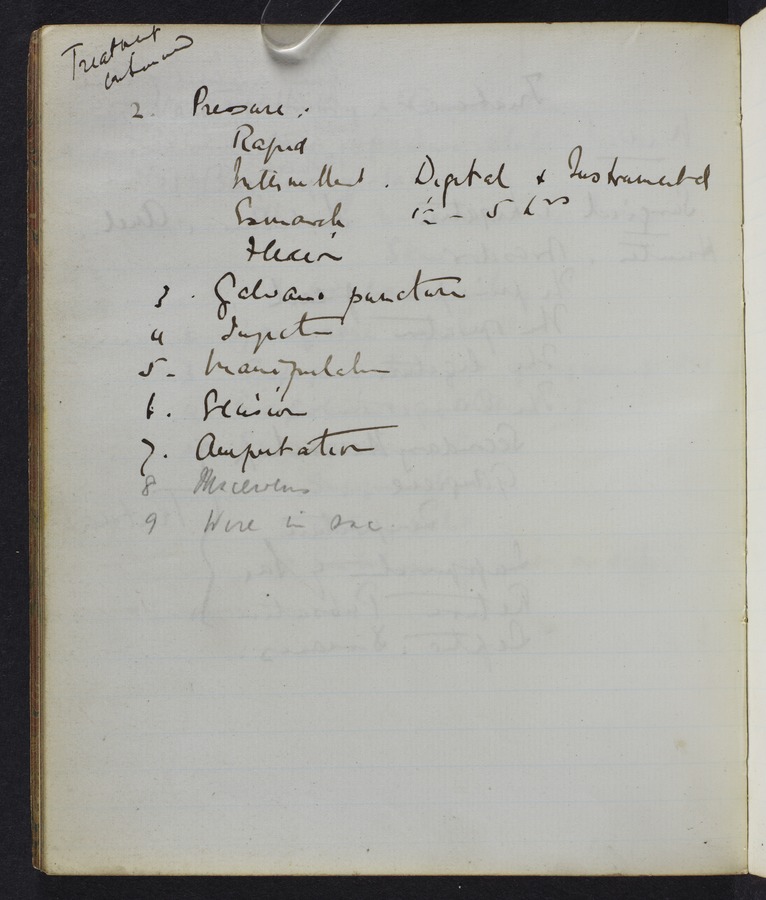 Treatment
continued
2. Pressure:
Rapid
Intermittent. Digital & Instrumental
Esmarch 1½ - 5 hrs
Flexion
3. Galvano puncture
4 Injection
5- Manipulation
6. Excision
7. Amputation
8 Macewens
9 Wire in sac